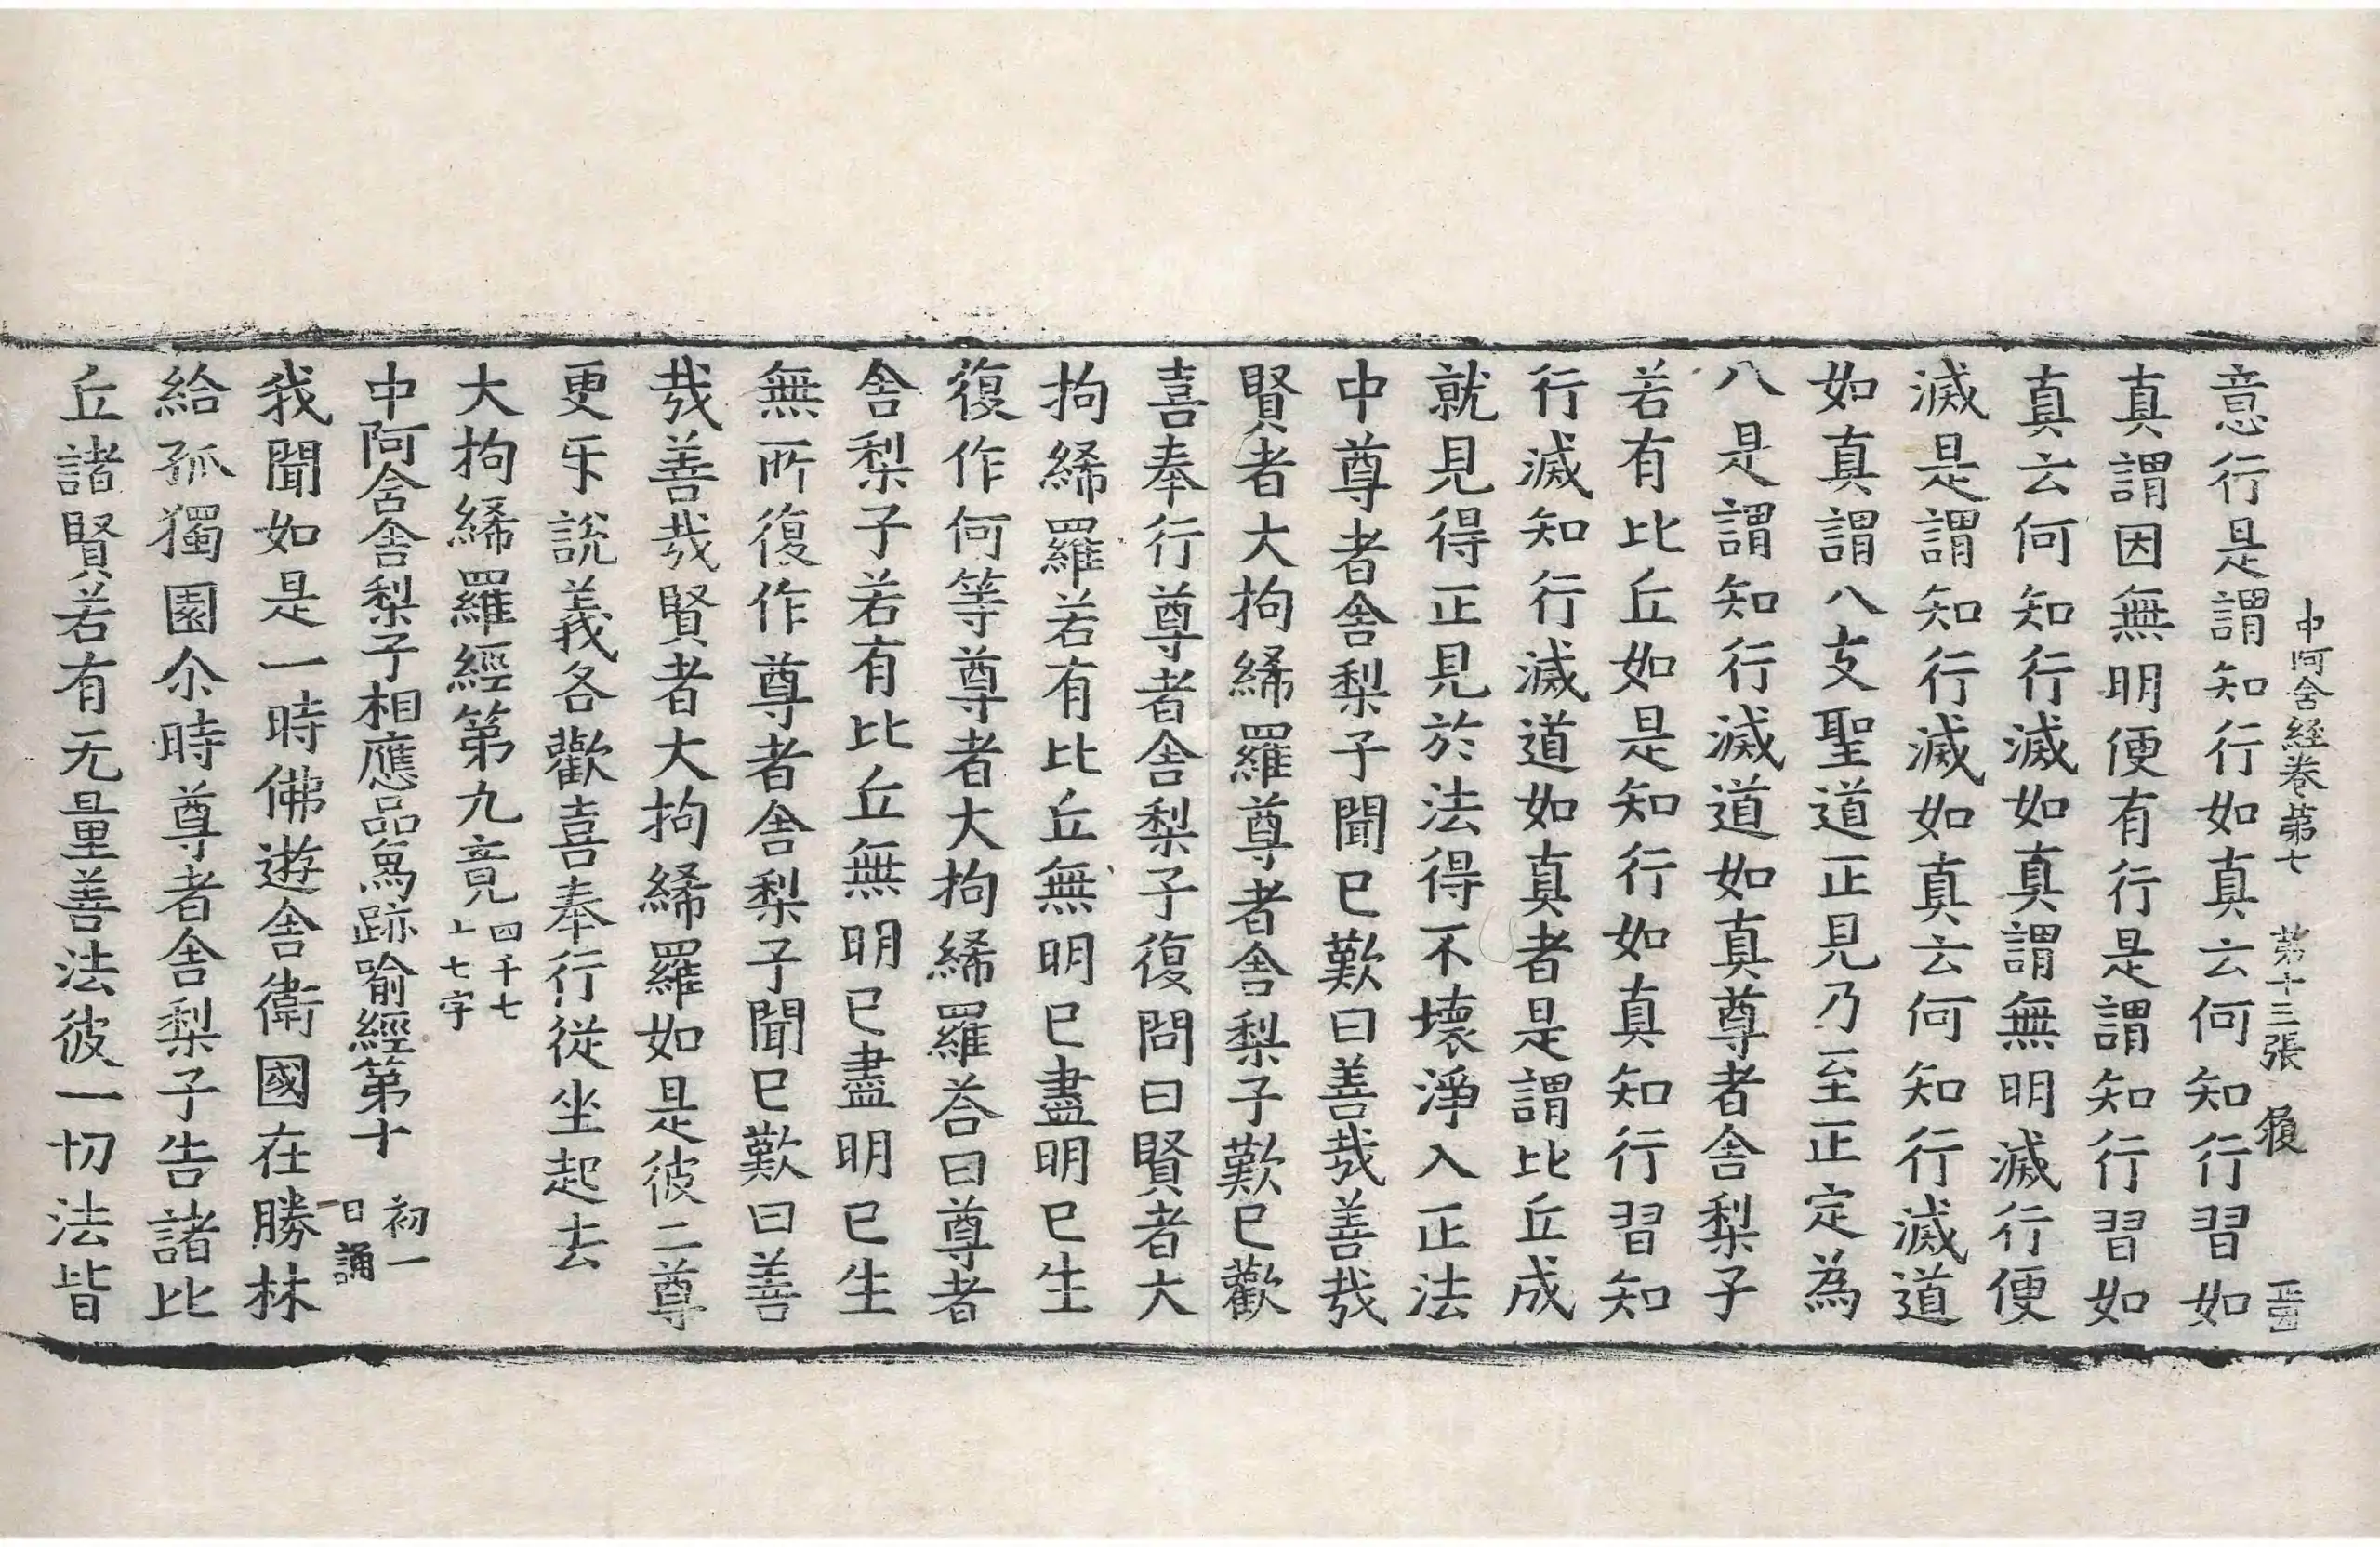 中阿含経卷第七　第十三張　履
意行是謂知行如真云何知行習如
真謂因無明便有行是謂知行習如
真云何知行滅如真謂無明滅行便
滅是謂知行滅如真云何知行滅道
如真謂八支聖道正見乃至正定為
八是謂知行滅道如真尊者舍梨子
若有比丘如是知行如真知行習知
行滅知行滅道如真者是謂比丘成
就見得正見於法得不壞淨入正法
中尊者舍梨子聞已歎曰善哉善哉
賢者大拘絺羅尊者舍梨子歎已歡
喜奉行尊者舍梨子復問曰賢者大
拘絺羅若有比丘無明已盡明已生
復作何等尊者大拘絺羅荅曰尊者
舍梨子若有比丘無明已盡明已生
無所復作尊者舍梨子聞已歎曰善
哉善哉賢者大拘絺羅如是彼二尊
更㸦說義各歡喜奉行從坐起去
大拘絺羅經第九竟四千七
上七字
中阿含舍梨子相應品象跡喻經第十初一
日誦
我聞如是一時佛遊舍衛國在勝林
給孤獨園尒時尊者舍梨子告諸比
丘諸賢若有无量善法彼一切法皆